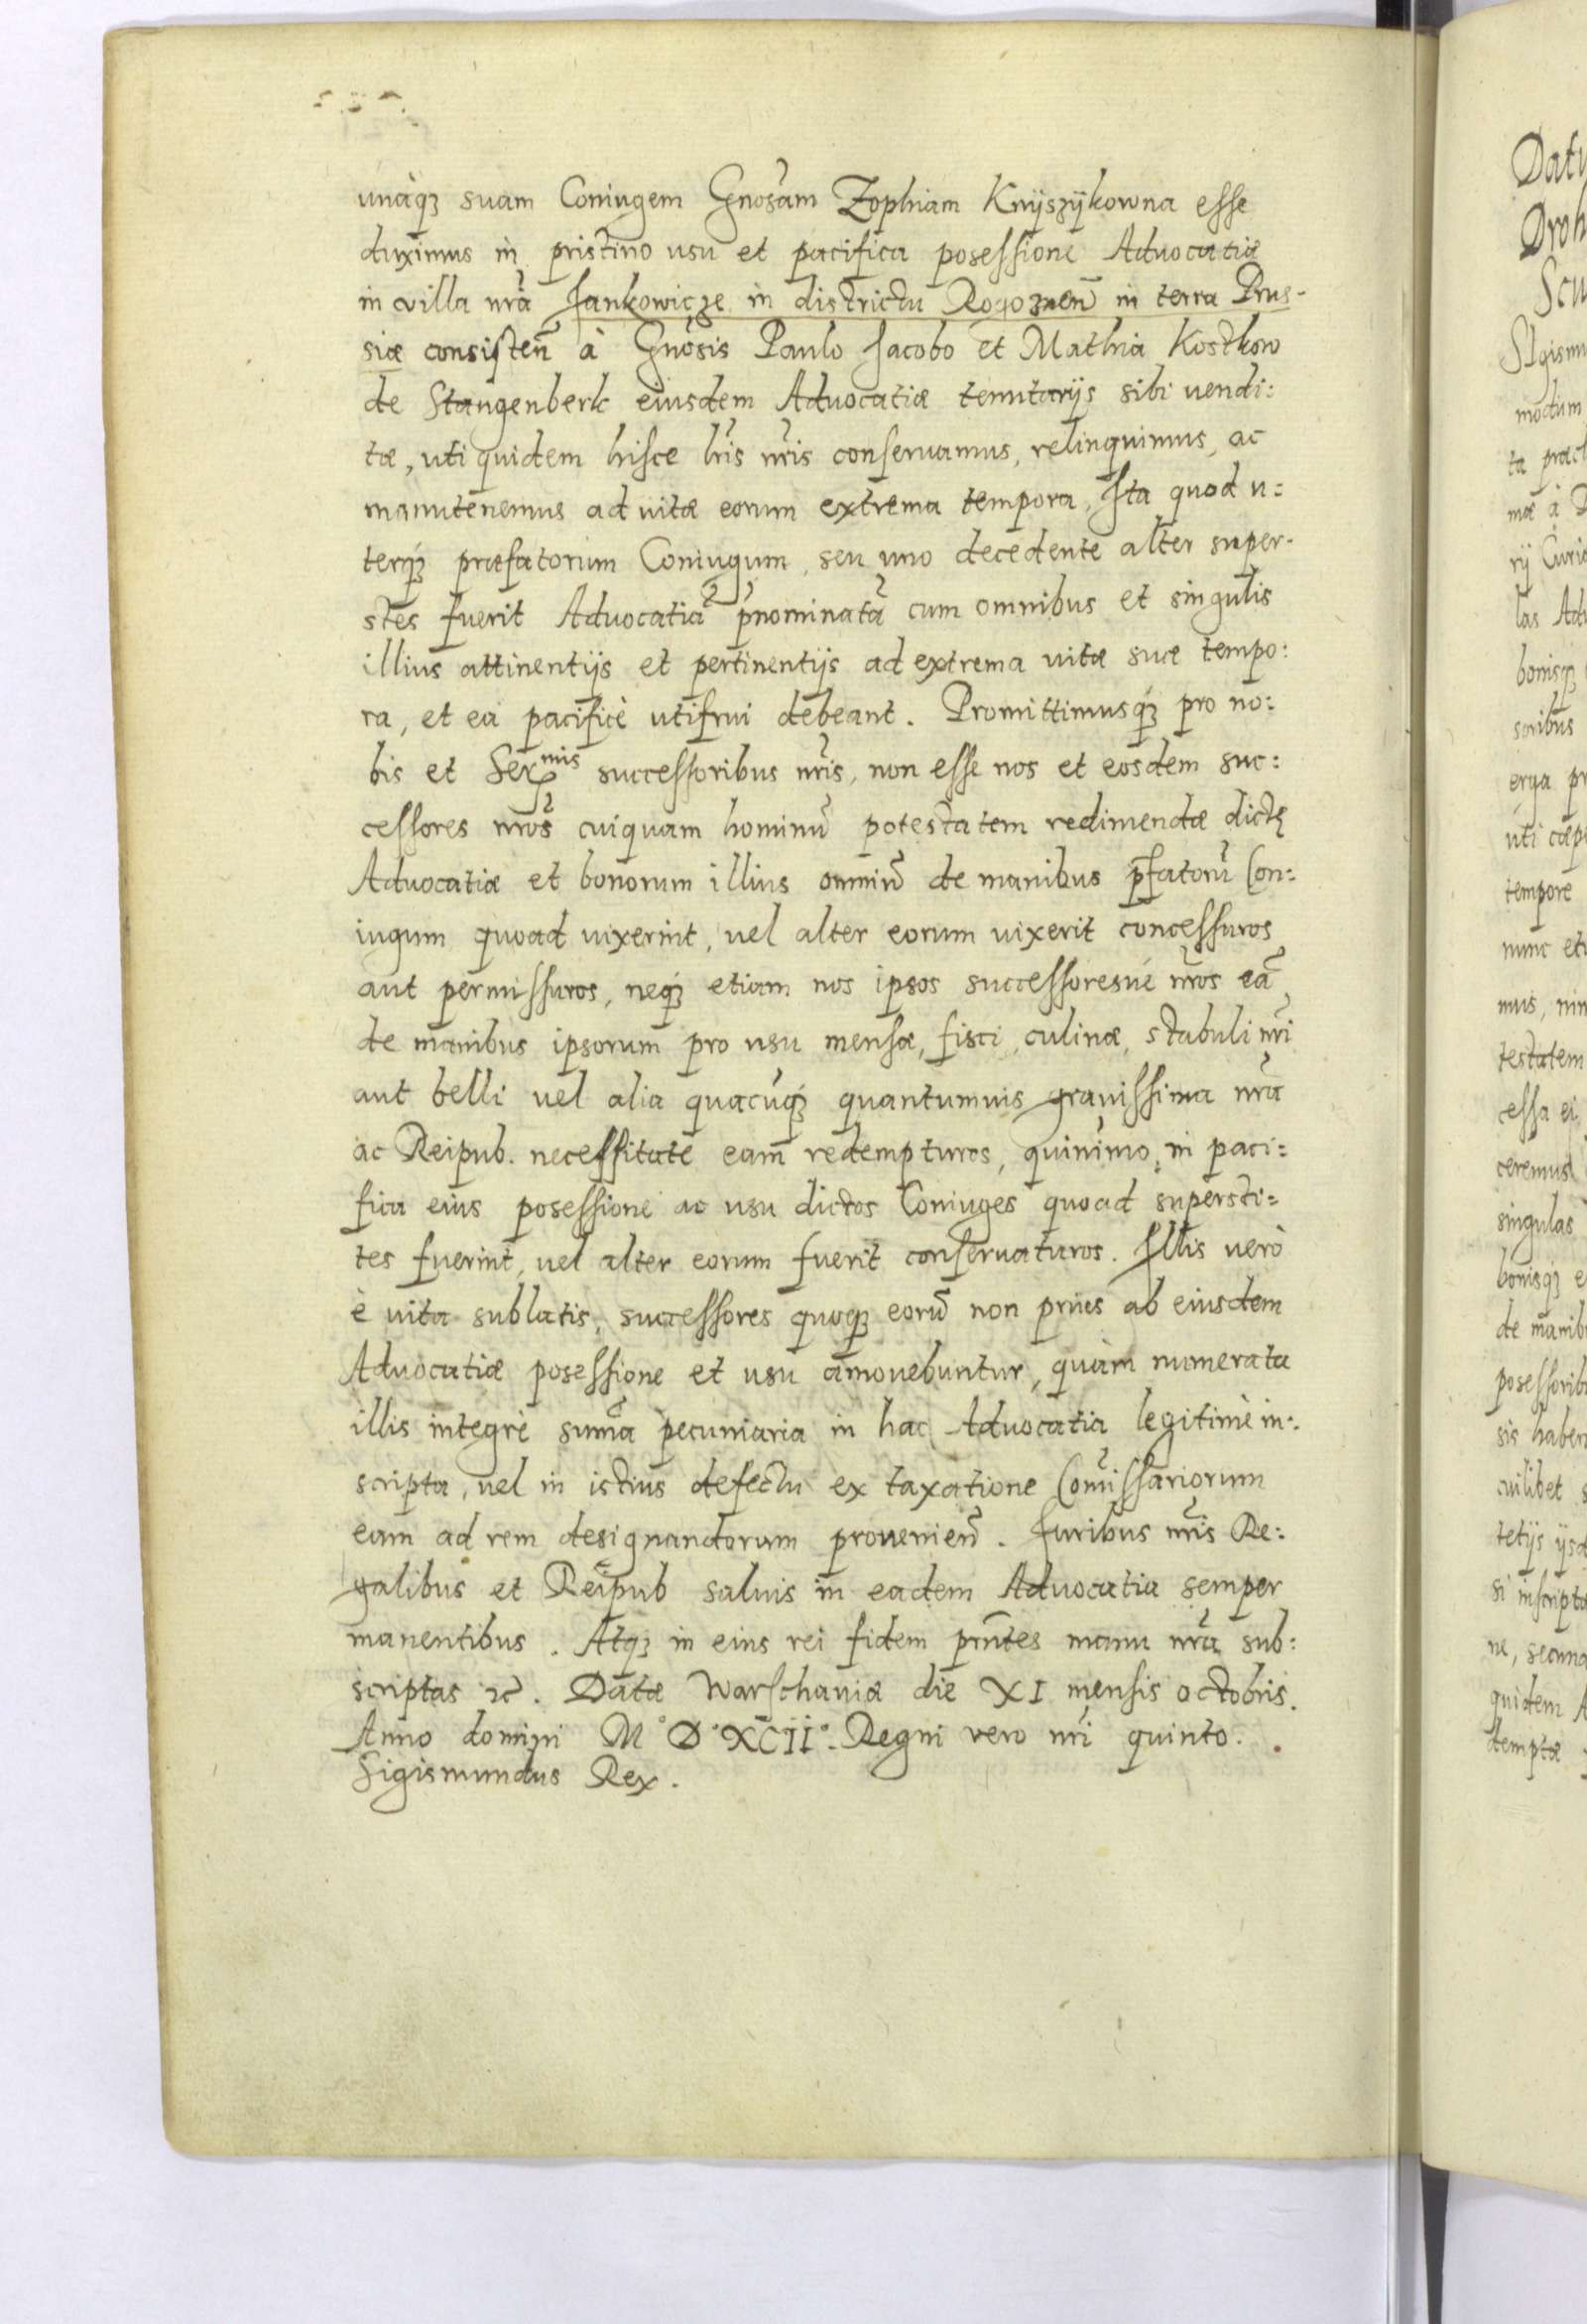 unàqꝫ suam Coniugem Gnosam Zophiam Knÿszÿkowna esse
duximus in pristino usu et pacifica posessione Aduocatiæ
in villa nrã Jankowicze in districtu Rogoznen̄ in terra Prus-
siæ consisten̄ à Gnosis Paulo Jacobo et Mathia Kostkow
de Stangenberk eiusdem Aduocatiæ tenutarijs sibi uendi:
tæ, uti quidem hisce lrĩs nrĩs conseruamus, relinquimus, ac
manutenemus ad uitæ eorum extrema tempora, Ita quod u:
terqꝫ præfatorum Coniugum, seu uno decedente alter super-
stes fuerit Aduocatiã p̃nominatã cum omnibus et singulis
illius attinentijs et pertinentijs ad extrema uitæ suæ tempo:
ra, et ea pacificè utifrui debeant. Promittimusqꝫ pro no:
bis et Serᵐⁱˢ successoribus nrĩs, non esse nos et eosdem suc:
cessores nrõs cuiquam hominũ potestatem redimendæ dictę
Aduocatiæ et bonorum illius omniũ de manibus p̃fatorũ Con:
iugum quoad uixerint, uel alter eorum uixerit concessuros
aut permissuros, neqꝫ etiam nos ipsos successoresué nrõs eã
de manibus ipsorum pro usu mensæ, fisci, culinæ, stabuli nrĩ
aut belli uel alia quacũqꝫ quantumuis grauissima nrã
ac Reipub. necessitate eam redempturos, quinimo, in paci:
fica eius posessione ac usu dictos Coniuges quoad supersti:
tes fuerint, uel alter eorum fuerit conseruaturos. Illis uerò
è uita sublatis, successores quoqꝫ eorũ non prius ab eiusdem
Aduocatiæ posessione et usu amouebuntur, quàm numerata
illis integrè sum̃a pecuniaria in hac Aduocatia legitimè in:
scripta, uel in istius defectu ex taxatione Com̃issariorum
eam ad rem designandorum prouenien̄. Juribus nrĩs Re:
galibus et Reipub saluis in eadem Aduocatia semper
manentibus. Atqꝫ in eius rei fidem prñtes manu nrã sub:
scriptas ꝛc̃. Datæ Warschauiæ die XI mensis octobris.
Anno domini M° D° XCII°. Regni vero nrĩ quinto.
Sigismundus Rex.